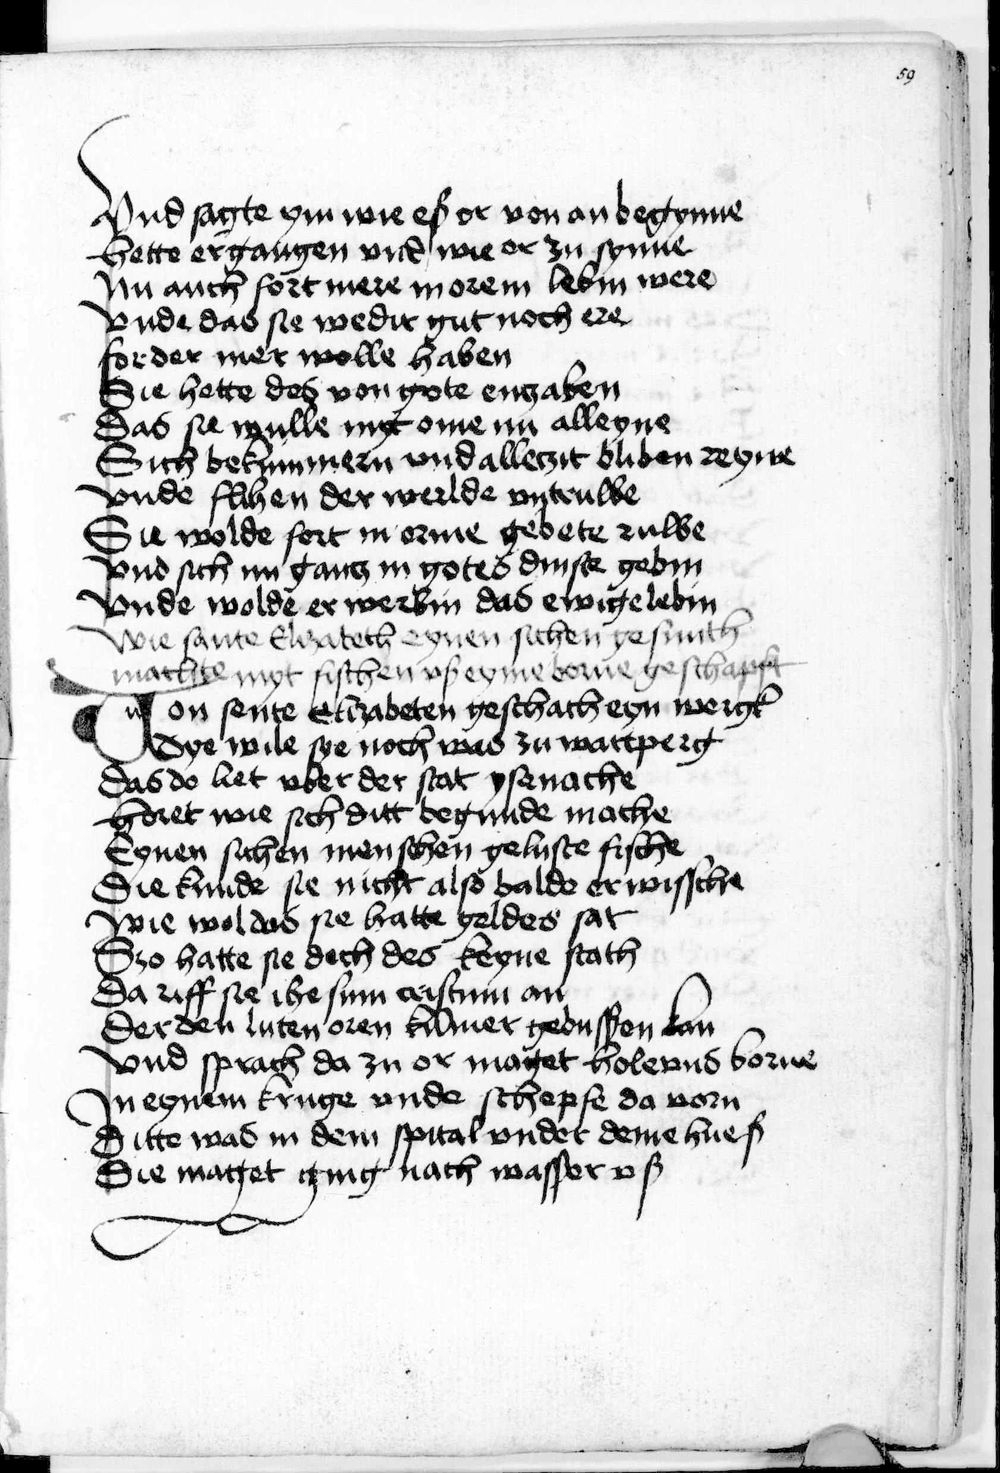 59
Vnd sagte ym wie eß or von anbegynne
hette ergangen vnd wie or zu synne
Nu auch fort mere in orem lebin were
vnde das sie wedir gut noch ere
forder mer wolle haben
Sie hette des von gote engaben
Das sie wulle myt ome nu alleyne
Sich bekummern vnd alleczit bliben reyne
vnde flihen der werlde vntruwe
Sie wolde fort in orme gebete ruwe
vnd sich nu gancz in gotes dinste gebin
vnde wolde erwerbin das ewige lebin
Wie sante Elizabeth eynen sichen gesunth
machte myt fischen vß eyme borne geschapft
Von sente Elizabeten geschach eyn wergk
Dye wile sye noch was zu wartperg
das do liet vber der stat ysenache
horet wie sich ditt begunde mache
Eynen sichen menschen geluste fische
Die kunde sie nicht also balde erwissche
Wie wol das sie hatte geldes sat
Szo hatte sie doch des keyne stath
Da riff sie ihesum cristum an
Der den luten oren kummer gebussen kan
vnd sprach da zu or maget hole vns borne
In eynem kruge vnde schepfe da vorn
Ditte was in dem spital vnder deme hueß
Die maget ging nach wasser vß